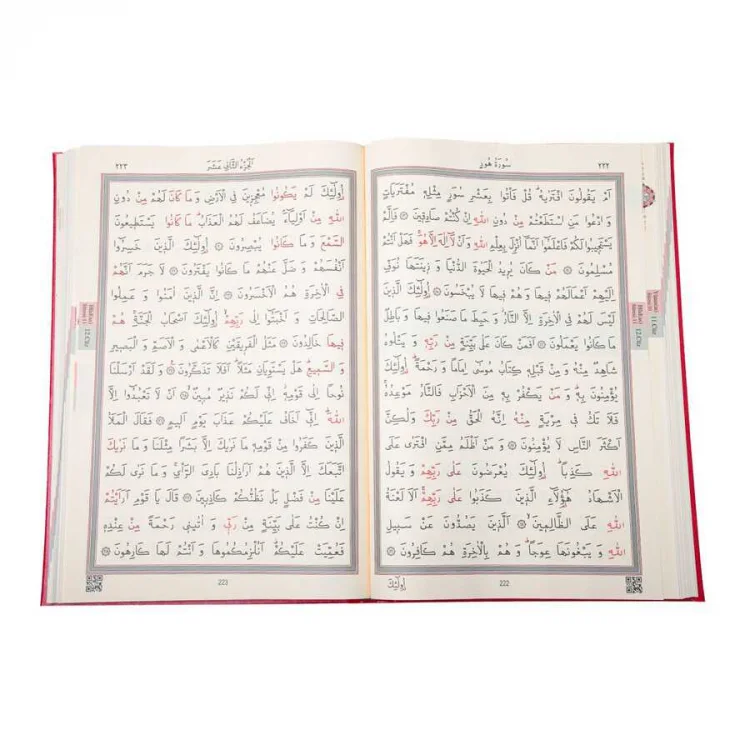 سُورَةُ هُودٍ ٢٢٢
اَمْ يَقُولُونَ افْتَرٰيهُ قُلْ فَأْتُوا بِعَشْرِ سُوَرٍ مِثْلِهِ مُفْتَرَيَاتٍ
وَ ادْعُوا مَنِ اسْتَطَعْتُمْ مِنْ دُونِ اللّٰهِ اِنْ كُنْتُمْ صَادِقِينَ ۞ فَاِلَّمْ
يَسْتَجِيبُوا لَكُمْ فَاعْلَمُوا اَنَّمَا اُنْزِلَ بِعِلْمِ اللّٰهِ وَ اَنْ لَا اِلٰهَ اِلَّا هُوَ فَهَلْ اَنْتُمْ
مُسْلِمُونَ ۞ مَنْ كَانَ يُرِيدُ الْحَيٰوةَ الدُّنْيَا وَ زِينَتَهَا نُوَفِّ
اِلَيْهِمْ اَعْمَالَهُمْ فِيهَا وَ هُمْ فِيهَا لَا يُبْخَسُونَ ۞ اُولٰئِكَ الَّذِينَ
لَيْسَ لَهُمْ فِي الْاٰخِرَةِ اِلَّا النَّارُ وَ حَبِطَ مَا صَنَعُوا فِيهَا وَ بَاطِلٌ
مَا كَانُوا يَعْمَلُونَ ۞ اَفَمَنْ كَانَ عَلٰى بَيِّنَةٍ مِنْ رَبِّهِ وَ يَتْلُوهُ
شَاهِدٌ مِنْهُ وَ مِنْ قَبْلِهِ كِتَابُ مُوسٰى اِمَامًا وَ رَحْمَةً اُولٰئِكَ
يُؤْمِنُونَ بِهِ وَ مَنْ يَكْفُرْ بِهِ مِنَ الْاَحْزَابِ فَالنَّارُ مَوْعِدُهُ
فَلَا تَكُ فِي مِرْيَةٍ مِنْهُ اِنَّهُ الْحَقُّ مِنْ رَبِّكَ وَلٰكِنَّ
اَكْثَرَ النَّاسِ لَا يُؤْمِنُونَ ۞ وَ مَنْ اَظْلَمُ مِمَّنِ افْتَرٰى عَلَى
اللّٰهِ كَذِبًا اُولٰئِكَ يُعْرَضُونَ عَلٰى رَبِّهِمْ وَ يَقُولُ
الْاَشْهَادُ هٰؤُلَاءِ الَّذِينَ كَذَبُوا عَلٰى رَبِّهِمْ اَلَا لَعْنَةُ
اللّٰهِ عَلَى الظَّالِمِينَ ۞ اَلَّذِينَ يَصُدُّونَ عَنْ سَبِيلِ
اللّٰهِ وَ يَبْغُونَهَا عِوَجًا وَ هُمْ بِالْاٰخِرَةِ هُمْ كَافِرُونَ ۞
222
اُولٰئِكَ
اَلْجُزْءُ الثَّانِي عَشَرَ ٢٢٣
اُولٰئِكَ لَمْ يَكُونُوا مُعْجِزِينَ فِي الْاَرْضِ وَ مَا كَانَ لَهُمْ مِنْ دُونِ
اللّٰهِ مِنْ اَوْلِيَاءَ يُضَاعَفُ لَهُمُ الْعَذَابُ مَا كَانُوا يَسْتَطِيعُونَ
السَّمْعَ وَ مَا كَانُوا يُبْصِرُونَ ۞ اُولٰئِكَ الَّذِينَ خَسِرُوا
اَنْفُسَهُمْ وَ ضَلَّ عَنْهُمْ مَا كَانُوا يَفْتَرُونَ ۞ لَا جَرَمَ اَنَّهُمْ
فِي الْاٰخِرَةِ هُمُ الْاَخْسَرُونَ ۞ اِنَّ الَّذِينَ اٰمَنُوا وَ عَمِلُوا
الصَّالِحَاتِ وَ اَخْبَتُوا اِلٰى رَبِّهِمْ اُولٰئِكَ اَصْحَابُ الْجَنَّةِ هُمْ
فِيهَا خَالِدُونَ ۞ مَثَلُ الْفَرِيقَيْنِ كَالْاَعْمٰى وَ الْاَصَمِّ وَ الْبَصِيرِ
وَ السَّمِيعِ هَلْ يَسْتَوِيَانِ مَثَلًا اَفَلَا تَذَكَّرُونَ ۞ وَ لَقَدْ اَرْسَلْنَا
نُوحًا اِلٰى قَوْمِهِ اِنِّي لَكُمْ نَذِيرٌ مُبِينٌ ۞ اَنْ لَا تَعْبُدُوا اِلَّا
اللّٰهَ اِنِّي اَخَافُ عَلَيْكُمْ عَذَابَ يَوْمٍ اَلِيمٍ ۞ فَقَالَ الْمَلَاُ
الَّذِينَ كَفَرُوا مِنْ قَوْمِهِ مَا نَرٰيكَ اِلَّا بَشَرًا مِثْلَنَا وَ مَا نَرٰيكَ
اتَّبَعَكَ اِلَّا الَّذِينَ هُمْ اَرَاذِلُنَا بَادِيَ الرَّأْيِ وَ مَا نَرٰى لَكُمْ
عَلَيْنَا مِنْ فَضْلٍ بَلْ نَظُنُّكُمْ كَاذِبِينَ ۞ قَالَ يَا قَوْمِ اَرَاَيْتُمْ
اِنْ كُنْتُ عَلٰى بَيِّنَةٍ مِنْ رَبِّي وَ اٰتٰينِي رَحْمَةً مِنْ عِنْدِهِ
فَعُمِّيَتْ عَلَيْكُمْ اَنُلْزِمُكُمُوهَا وَ اَنْتُمْ لَهَا كَارِهُونَ ۞
223
12.Cüz
11.Cüz
12.Cüz